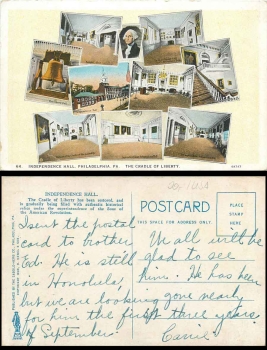 64. INDEPENDENCE HALL, PHILADELPHIA, PA. THE CRADLE OF LIBERTY.
INDEPENDENCE HALL.
The Cradle of Liberty has been restored, and
is gradually being filled with authentic historical
relics, under the superintendence of the Sons of
the American Revolution.
POSTCARD
THIS SPACE FOR ADDRESS ONLY
I sent the postal
card to brother
Ed. He is still
in Honolulu,
but we are looking
for him the first
of September.
We all will be
glad to see
him. He has been
gone nearly
three years.
Carrie